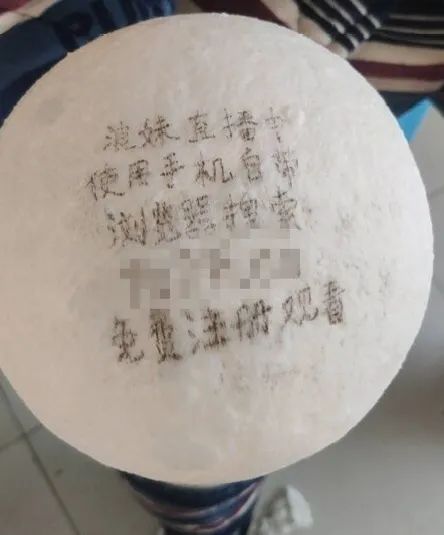 浪妹直播
使用手机自带
浏览器搜索
免费注册观看